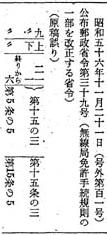 昭和五十六年十一月二十日(号外第百一号)
公布郵政省令第三十九号(無線局免許手続規則の
一部を改正する省令)
(原稿誤り)
九 下 二 第十五の三 第十五条の三
〃 上 終りから六 第5巻の5 第15巻の5